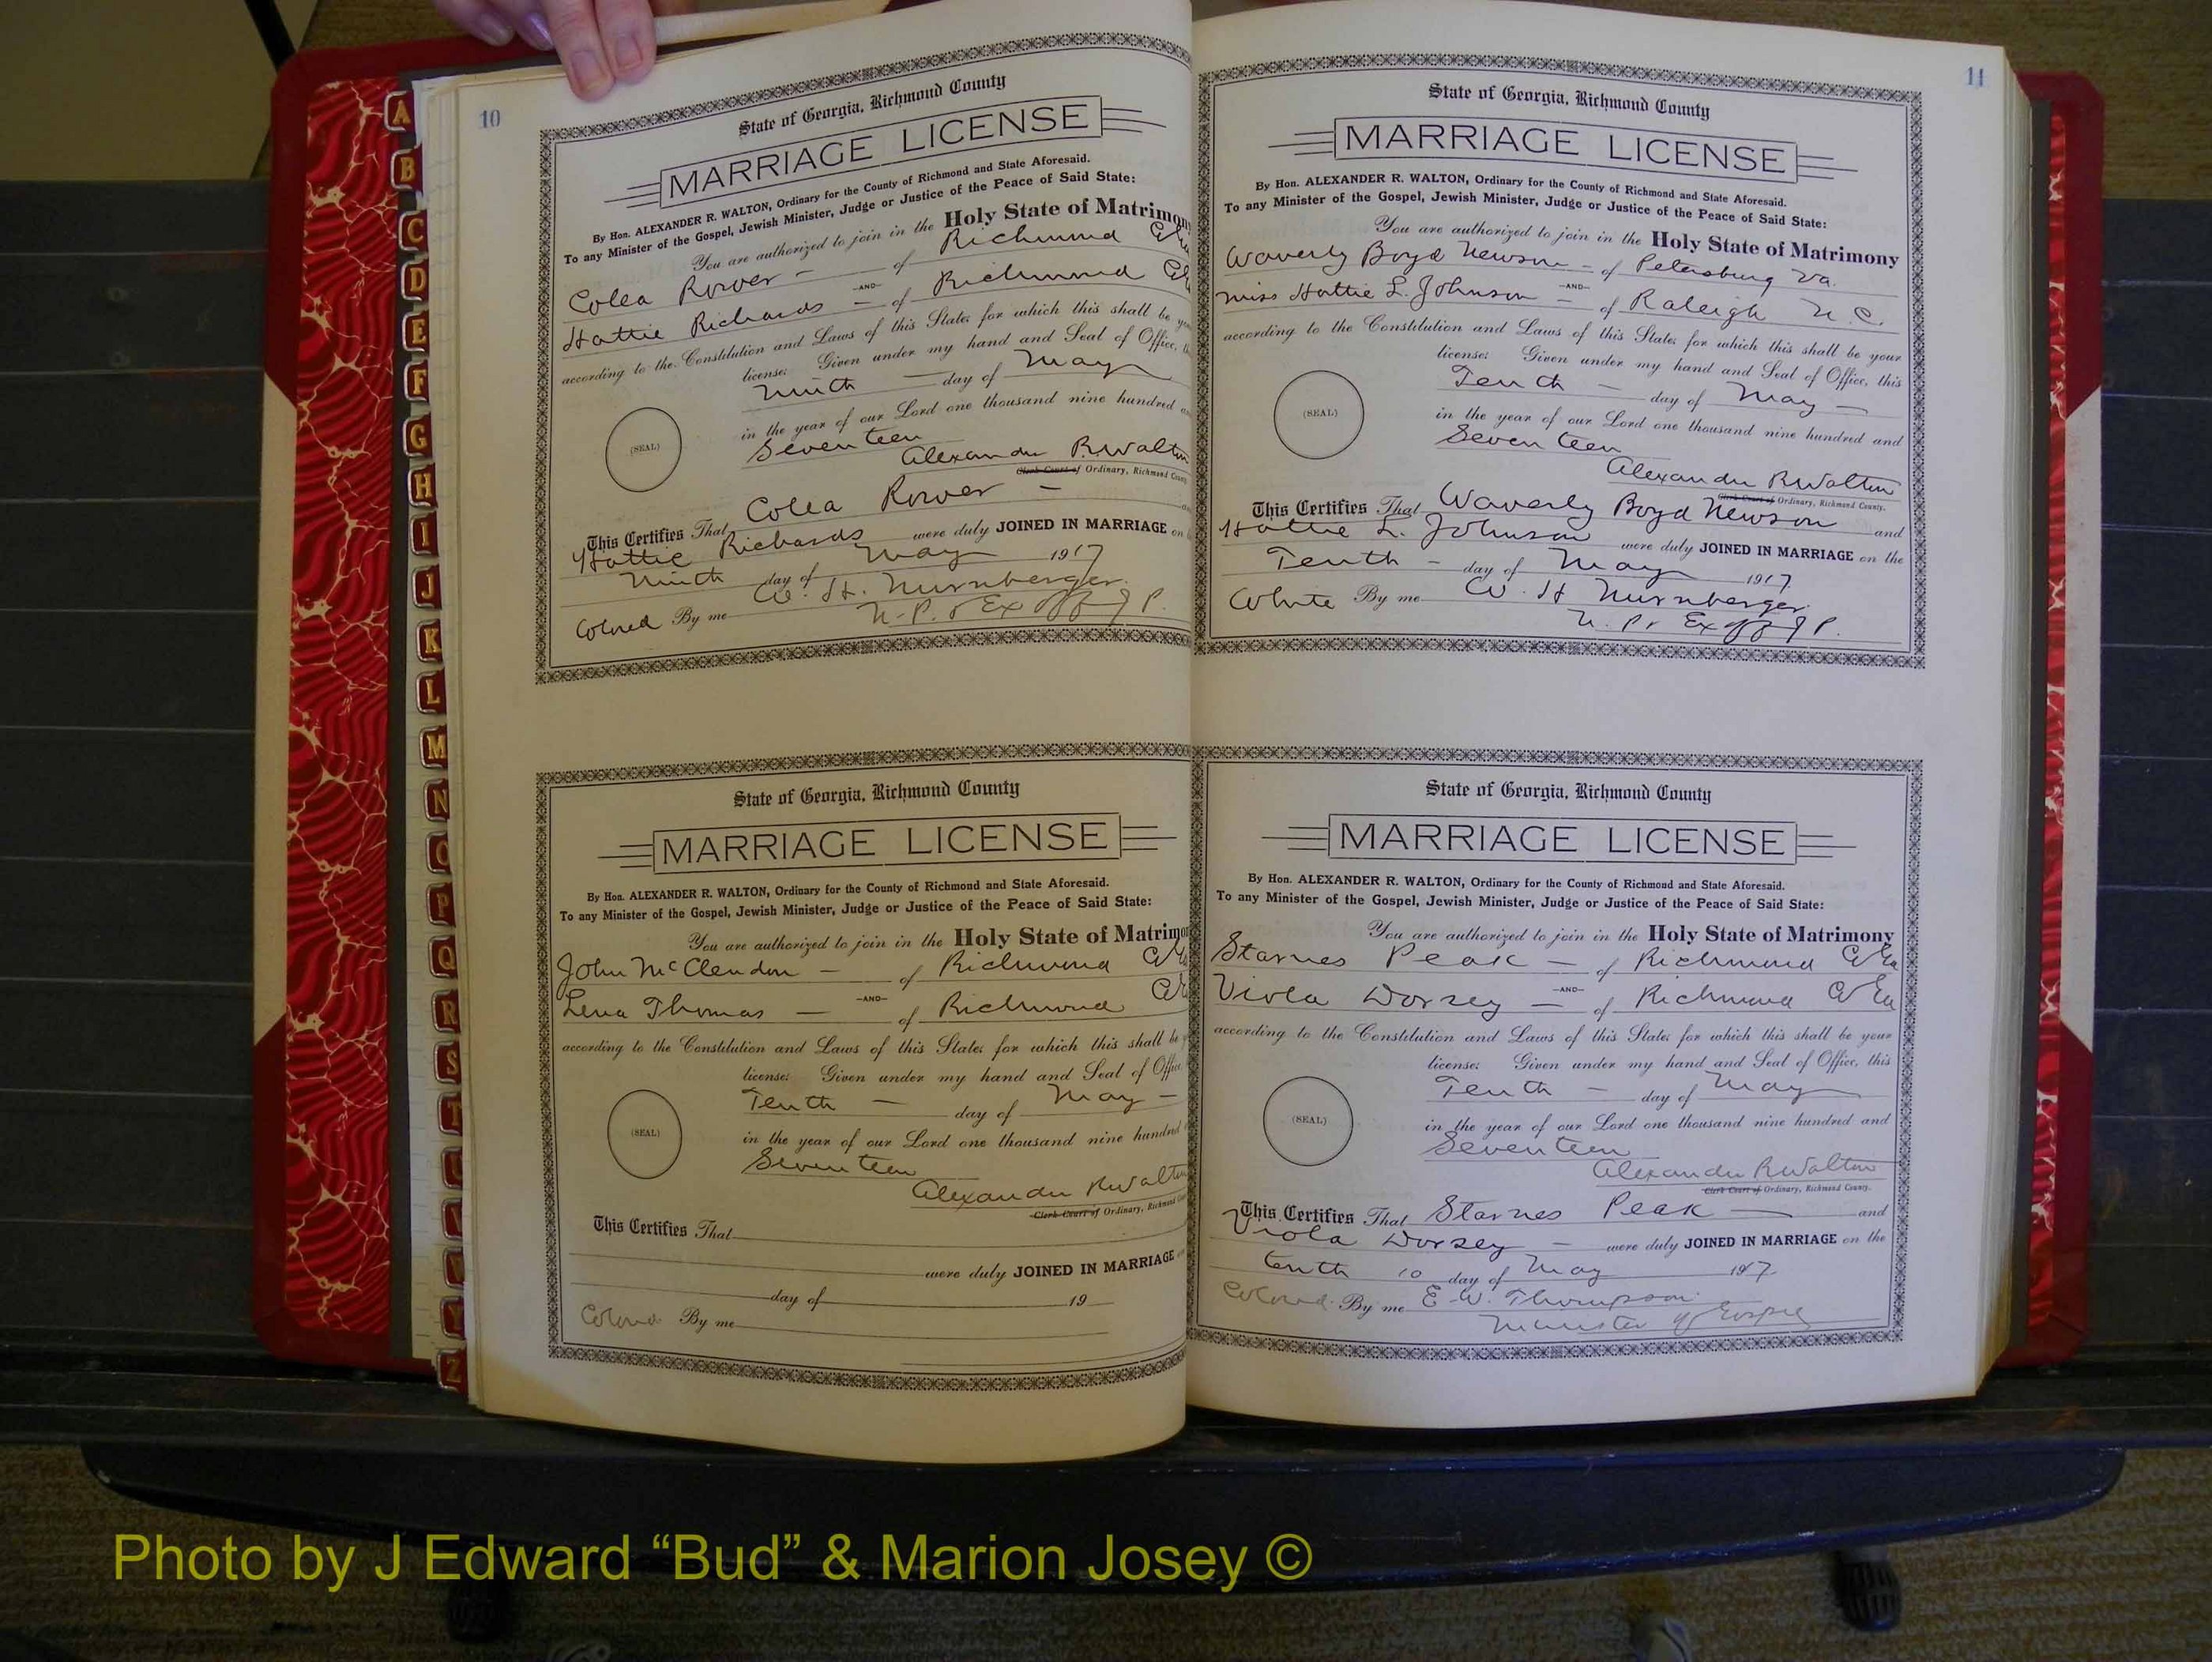 A
B
C
D
E
F
G
H
I
J
K
L
M
N
O
P
Q
R
S
T
U
V
W
Y
Z
10
State of Georgia, Richmond County
MARRIAGE LICENSE
By Hon. ALEXANDER R. WALTON, Ordinary for the County of Richmond and State Aforesaid.
To any Minister of the Gospel, Jewish Minister, Judge or Justice of the Peace of Said State:
You are authorized to join in the Holy State of Matrimony
Colea Rower - of Richmond
-AND-
Hattie Richards - of Richmond
according to the Constitution and Laws of this State; for which this shall be
license: Given under my hand and Seal of Office,
Ninth - day of May
(SEAL)
in the year of our Lord one thousand nine hundred
Seventeen
Alexander R Walton
Clerk Court of Ordinary, Richmond
Colea Rower -
This Certifies That
Hattie Richards were duly JOINED IN MARRIAGE on
Ninth day of May 1917
Colored By me W. H. Nurnberger.
N.P. & Ex off J P.
State of Georgia, Richmond County
MARRIAGE LICENSE
By Hon. ALEXANDER R. WALTON, Ordinary for the County of Richmond and State Aforesaid.
To any Minister of the Gospel, Jewish Minister, Judge or Justice of the Peace of Said State:
You are authorized to join in the Holy State of
John McClendon - of Richmond
-AND-
Lena Thomas - of Richmond
according to the Constitution and Laws of this State; for which this shall be
license: Given under my hand and Seal of
Tenth - day of May -
(SEAL)
in the year of our Lord one thousand nine hundred
Seventeen
Alexander R Walton
Clerk Court of Ordinary, Richmond
This Certifies That
were duly JOINED IN MARRIAGE
day of 19
Colored By me
11
State of Georgia, Richmond County
MARRIAGE LICENSE
By Hon. ALEXANDER R. WALTON, Ordinary for the County of Richmond and State Aforesaid.
To any Minister of the Gospel, Jewish Minister, Judge or Justice of the Peace of Said State:
You are authorized to join in the Holy State of Matrimony
Waverly Boyd Newson - of Petersburg Va.
-AND-
Miss Hattie L. Johnson - of Raleigh N.C.
according to the Constitution and Laws of this State; for which this shall be your
license: Given under my hand and Seal of Office, this
Tenth - day of May -
(SEAL)
in the year of our Lord one thousand nine hundred and
Seventeen
Alexander R Walton
Clerk Court of Ordinary, Richmond County.
This Certifies That Waverly Boyd Newson and
Hattie L. Johnson were duly JOINED IN MARRIAGE on the
Tenth - day of May 1917
White By me W. H Nurnberger.
N. P. & Ex off J P.
State of Georgia, Richmond County
MARRIAGE LICENSE
By Hon. ALEXANDER R. WALTON, Ordinary for the County of Richmond and State Aforesaid.
To any Minister of the Gospel, Jewish Minister, Judge or Justice of the Peace of Said State:
You are authorized to join in the Holy State of Matrimony
Starnes Peak - of Richmond
-AND-
Viola Dorsey - of Richmond
according to the Constitution and Laws of this State; for which this shall be your
license: Given under my hand and Seal of Office, this
Tenth - day of May
(SEAL)
in the year of our Lord one thousand nine hundred and
Seventeen
Alexander R Walton
Clerk Court of Ordinary, Richmond County.
This Certifies That Starnes Peak - and
Viola Dorsey - were duly JOINED IN MARRIAGE on the
tenth 10 day of May 1917
Colored By me E. W. Thompson
Minister of Gospel
Photo by J Edward “Bud” & Marion Josey ©